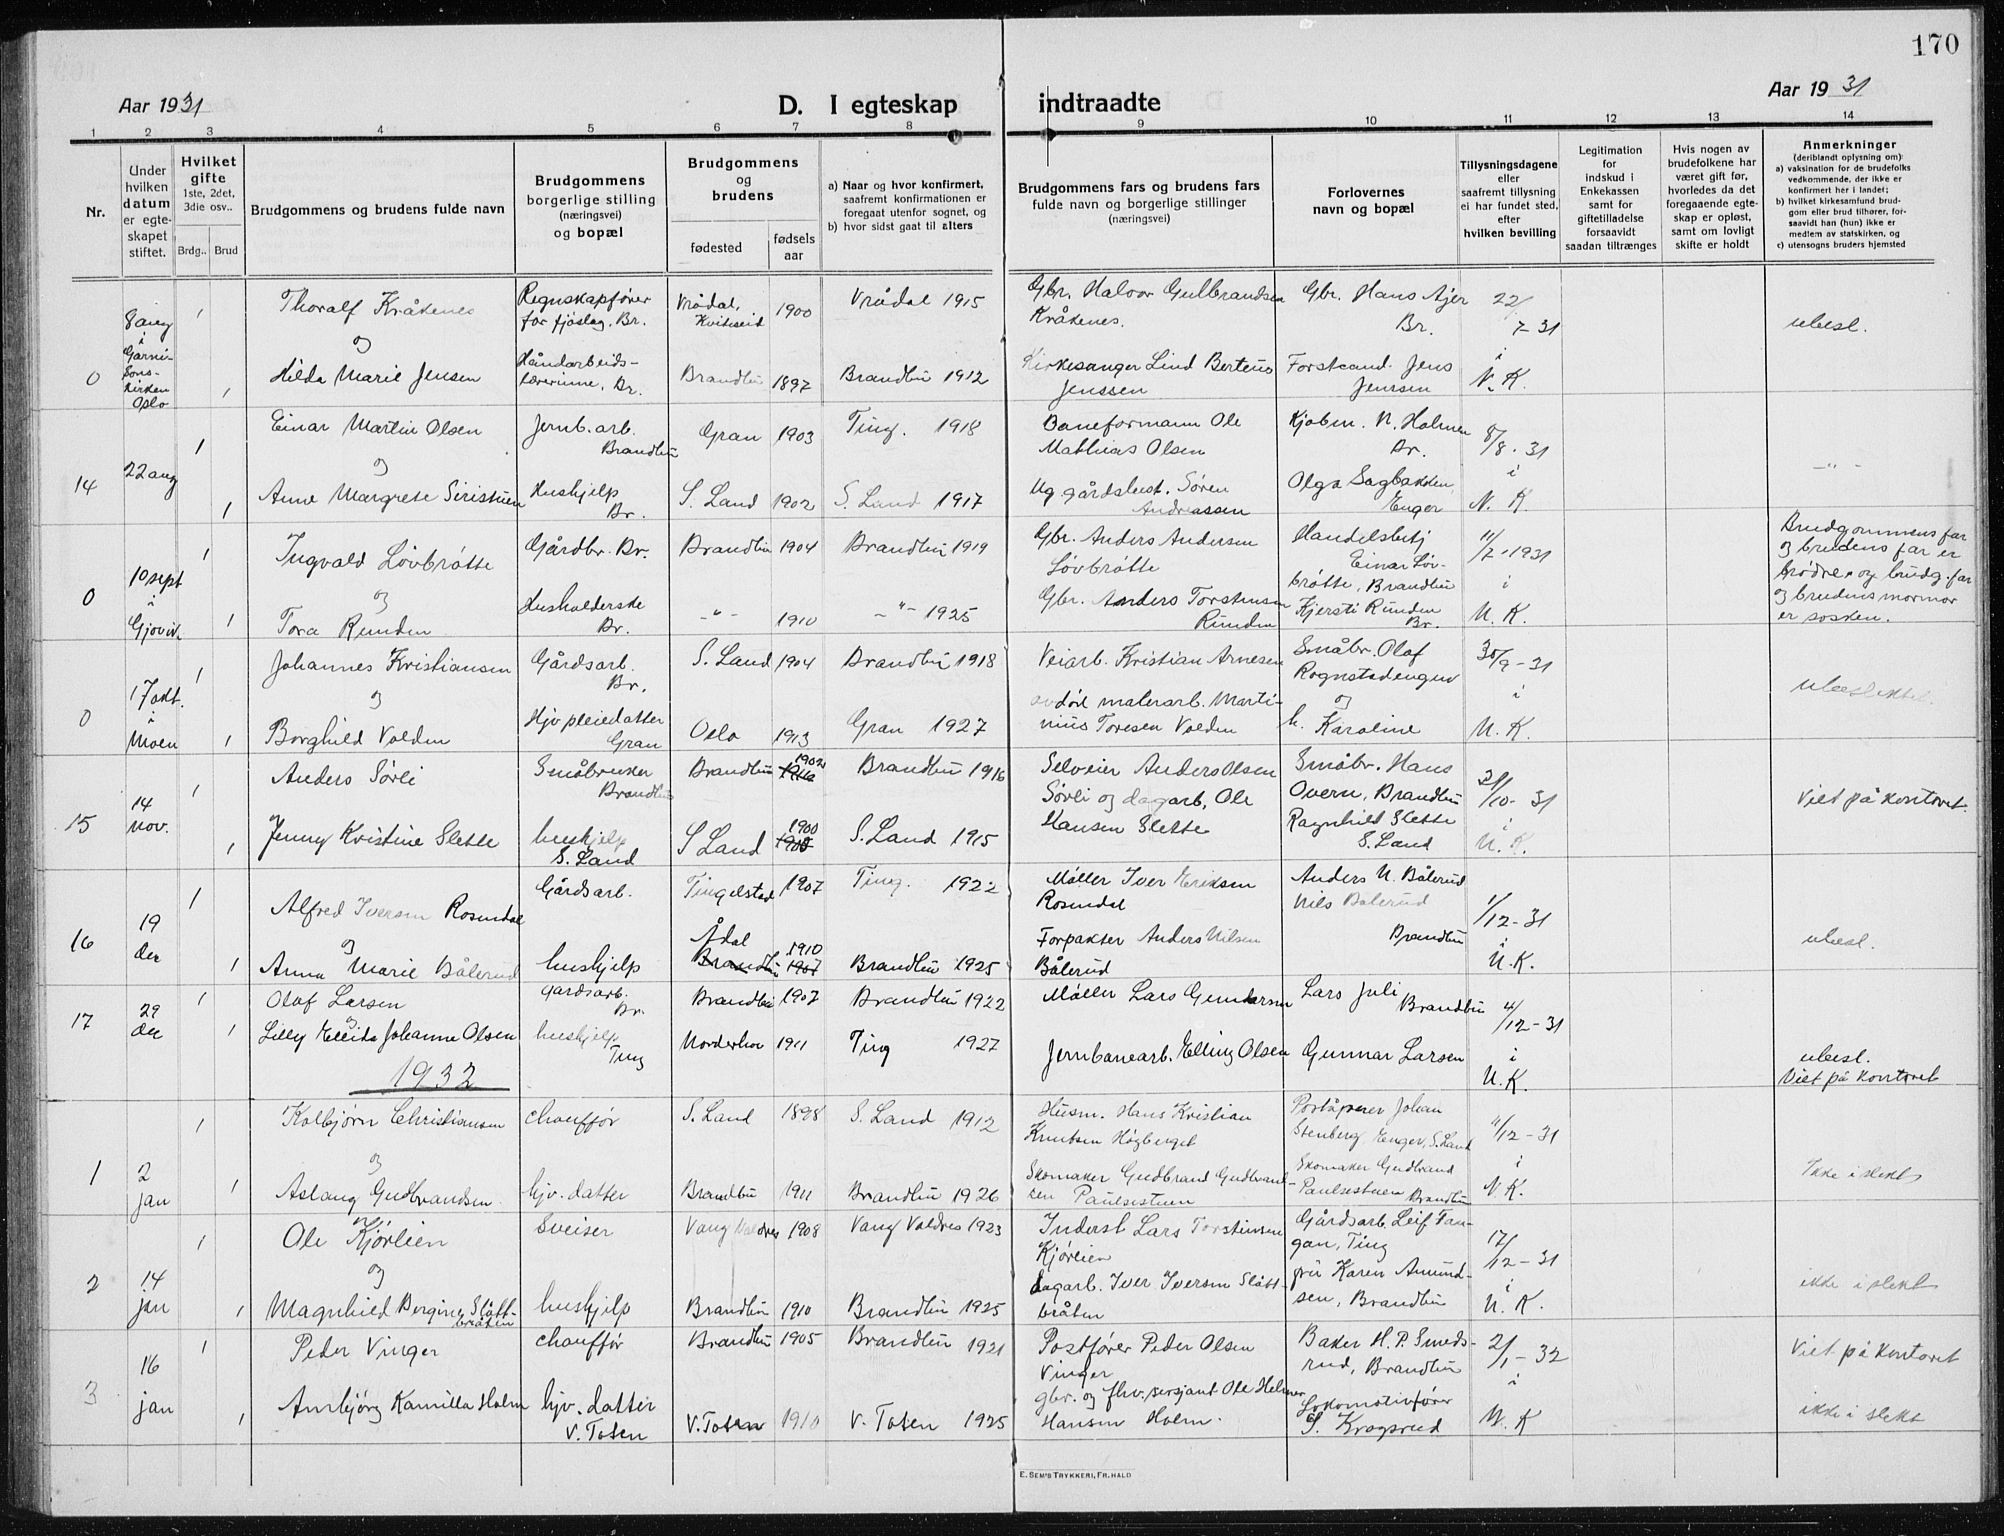 170
Aar 1931
D. I egteskap indtraadte
Aar 1931
1 2 3 4 5 6 7 8 9 10 11 12 13 14
Nr.
Under hvilken datum er egteskapet stiftet.
Hvilket gifte 1ste, 2det, 3die osv..
Brdg.. Brud
Brudgommens og brudens fulde navn
Brudgommens borgerlige stilling (næringsvei) og bopæl
Brudgommens og brudens
fødested
fødsels aar
a) Naar og hvor konfirmert, saafremt konfirmationen er foregaat utenfor sognet, og
b) hvor sidst gaat til alters
Brudgommens fars og brudens fars fulde navn og borgerlige stillinger (næringsvei)
Forlovernes navn og bopæl
Tillysningsdagene eller saafremt tillysning ei har fundet sted, efter hvilken bevilling
Legitimation for indskud i Enkekassen samt for giftetilladelse forsaavidt saadan tiltrænges
Hvis nogen av brudefolkene har været gift før, hvorledes da det foregaaende egteskap er opløst, samt om lovligt skifte er holdt
Anmerkninger
(deriblandt oplysning om):
a) vaksination for de brudefolks vedkommende, der ikke er konfirmert her i landet;
b) hvilket kirkesamfund brudgom eller brud tilhører, forsaavidt han (hun) ikke er medlem av statskirken, og
c) utensogns bruders hjemsted
0 8 aug i Garnisonskirken Oslo
1 Thoralf Kråkenes Regnskapfører for fjøslag, Br. Vrådal, Kviteseid 1900 Vrådal 1915 Gbr. Halvor Gulbrandsen Kråkenes. Gbr. Hans Ajer Br. 22/7-31 ubesl.
og
1 Hilda Marie Jensen Håndarbeidslærerinne, Br. Brandbu 1897 Brandbu 1912 Kirkesanger Lind Berteus Jenssen Forstcand. Jens Jenssen i N. K.
14 22 aug
1 Einar Martin Olsen Jernb. arb. Brandbu Gran 1903 Ting. 1918 Baneformann Ole Mathias Olsen Kjøbm. N. Holmen Br. 8/8-31 - " -
og
1 Anne Margrete Siristuen Hushjelp Br. S. Land 1902 S. Land 1917 Ug gårdsbest. Søren Andreassen Olga Sagbakken, Enger i N. K.
0 10 sept i Gjøvik
1 Ingvald Løvbråtte Gårdbr. Br. Brandbu 1904 Brandbu 1919 Gbr. Anders Andersen Løvbråtte Handelsbetj Einar Løvbråtte, Brandbu 11/7-1931 Brudgommens far og brudens far er brødre og brudg. far og brudens mormor er søsken.
og
1 Tora Runden Husholderske Br. - " - 1910 - " - 1925 Gbr. Anders Torstensen Runden Kjersti Runden Br. i N. K.
0 17 okt. i Moen
1 Johannes Kristiansen Gårdsarb. Br. S. Land 1904 Brandbu 1918 Veiarb. Kristian Arnesen Småbr. Olaf Rognstadengen 30/9-31 ubeslektet
og
1 Borghild Volden Hjv pleiedatter Gran Oslo 1913 Gran 1927 avdøde malerarb. Martinius Toresen Volden og h. Karoline i N. K.
15 14 nov.
1 Anders Sørli Småbruker Brandbu Brandbu 1902 Brandbu 1916 Selveier Anders Olsen Sørli og dagarb. Ole Hansen Slette Småbr. Hans Overn, Brandbu 21/10-31 Viet på kontoret.
og
1 Jenny Kristine Slette hushjelp S. Land S Land 1900 S. Land 1915 Ragnhild Slette S. Land i N. K.
16 19 des
1 Alfred Iversen Rosendal Gårdsarb. Tingelstad 1907 Ting. 1922 Møller Iver Eriksen Rosendal Anders N. Bålerud Nils Bålerud Brandbu 1/12-31 ubesl.
og
1 Anna Marie Bålerud hushjelp Ådal 1910 Brandbu 1925 Forpakter Anders Nilsen Bålerud i N. K.
17 29 des
1 Olaf Larsen Gårdsarb. Br. Brandbu 1907 Brandbu 1922 Møller Lars Gundersen Lars Juli Brandbu 4/12-31
og
1 Lilly Ellida Johanne Olsen hushjelp Ting Norderhov 1911 Ting 1927 Jernbanearb. Elling Olsen Gunnar Larsen i N. K. ubesl. Viet på kontoret
1932
1 2 jan
1 Kolbjørn Christiansen chauffør S. Land 1898 S. Land 1912 Husm. Hans Kristian Knutsen Høgberget Poståpner Johan Stenberg, Enger, S. Land 11/12-31
og
1 Aslaug Gudbrandsen hjv. datter Brandbu 1911 Brandbu 1926 Skomaker Gudbrand Gudbrandsen Paulsestuen Skomaker Gudbrand Paulsestuen Brandbu i N K. Ikke i slekt
2 14 jan
1 Ole Kjørlien Sveiser Vang Valdres 1908 Vang Valdres 1923 Inderst Lars Torstensen Kjørlien Gårdsarb. Leif Tangan, Ting 17/12-31 ikke i slekt
og
1 Magnhild Bergine Slåttbråten hushjelp Brandbu 1910 Brandbu 1925 Dagarb. Iver Iversen Slåttbråten fru Karen Amundsen, Brandbu i N. K.
3 16 jan
1 Peder Vinger chauffør Brandbu 1905 Brandbu 1921 Postfører Peder Olsen Vinger Baker H. P. Smedsrud, Brandbu 2/1-32 Viet på kontoret
1 Annbjørg Kamilla Holm hjv. datter V. Toten V. Toten 1910 V. Toten 1925 gbr. og fhv. sersjant Ole Helmer Hansen Holm. Lokomotivfører S. Krogsrud i N. K ikke i slekt
E. SEM'S TRYKKERI, FR.HALD